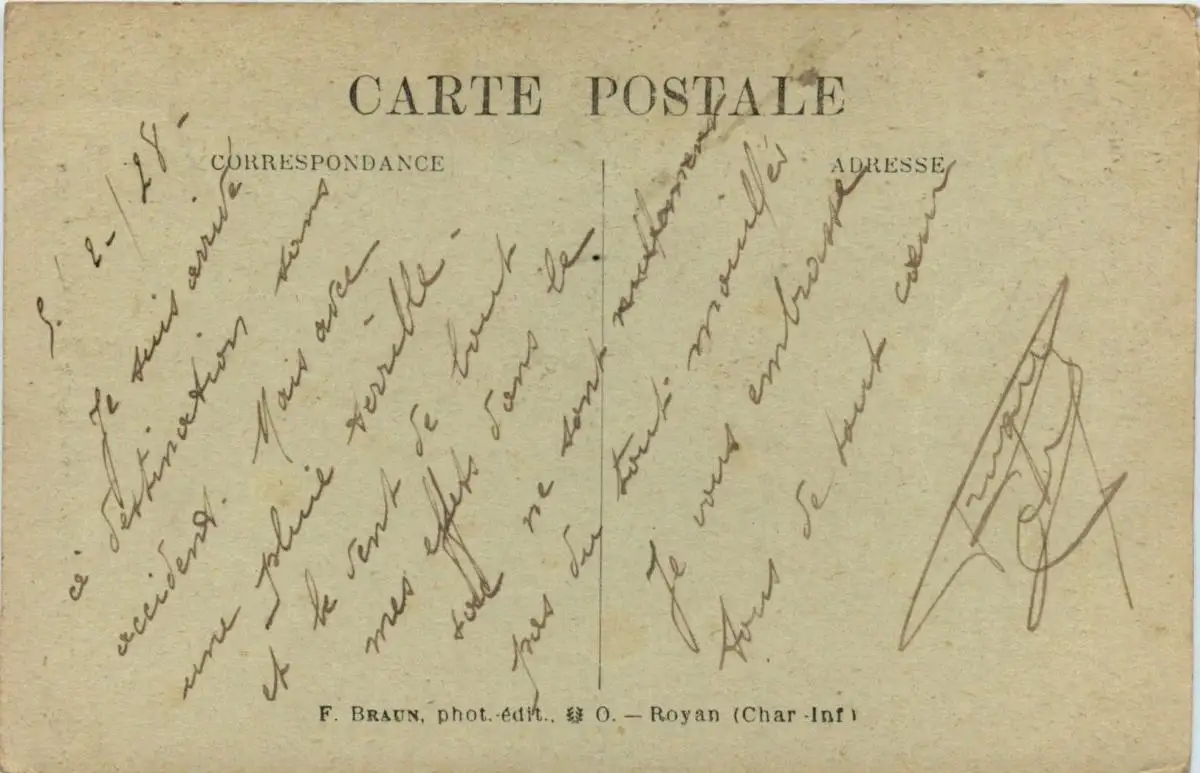 CARTE POSTALE
CORRESPONDANCE
ADRESSE
2-/28-
Je suis arrivé
à destination sans
accident. Mais avec
une pluie terrible-
et le vent de bout
mes effets dans le
sac ne sont
pas du tout mouillés
Je vous embrasse
tous de tout cœur
F. BRAUN, phot.-édit., O. — Royan (Char-Inf)